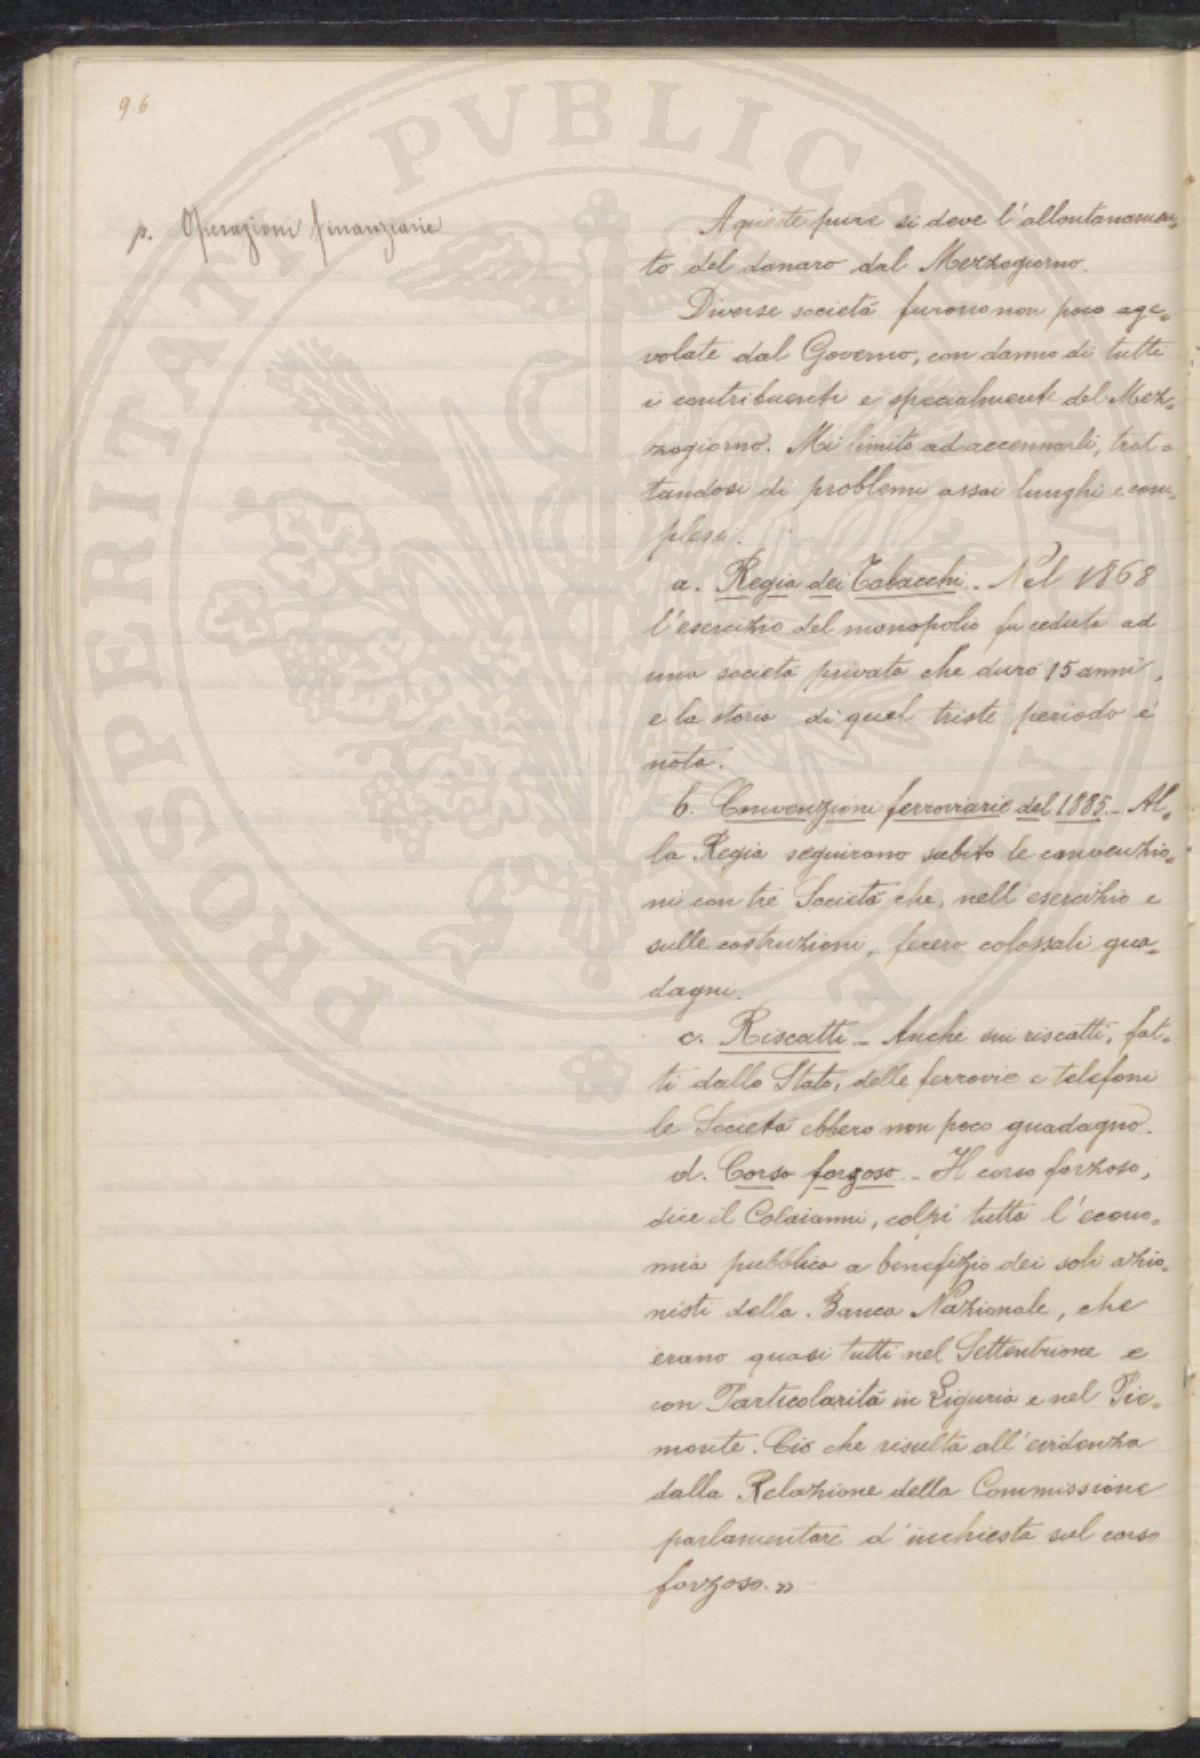 96
p. Operazioni finanziarie
A queste pure si deve l'allontanamen=
to del danaro dal Mezzogiorno.
Diverse società furono non poco age=
volate dal Governo, con danno di tutti
i contribuenti e specialmente del Mez=
zogiorno. Mi limito ad accennarli, trat=
tandosi di problemi assai lunghi e com=
plessi.
a. Regia dei Tabacchi. - Nel 1868
l'esercizio del monopolio fu ceduto ad
una società privata che durò 15 anni,
e la storia di quel triste periodo è
nota.
b. Convenzioni ferroviarie del 1885. - Al=
la Regia seguirono subito le convenzio=
ni con tre Società che, nell'esercizio e
sulle costruzioni, fecero colossali gua=
dagni.
c. Riscatti - Anche sui riscatti, fat=
ti dallo Stato, delle ferrovie e telefoni
le Società ebbero non poco guadagno.
d. Corso forzoso. - Il corso forzoso,
dice il Colaianni, colpì tutta l'econo=
mia pubblica a benefizio dei soli azio=
nisti della Banca Nazionale, che
erano quasi tutti nel Settentrione e
con Particolarità in Liguria e nel Pie=
monte. Ciò che risulta all'evidenza
dalla Relazione della Commissione
parlamentare d'inchiesta sul corso
forzoso.»
PROSPERITATI PVBLICAE